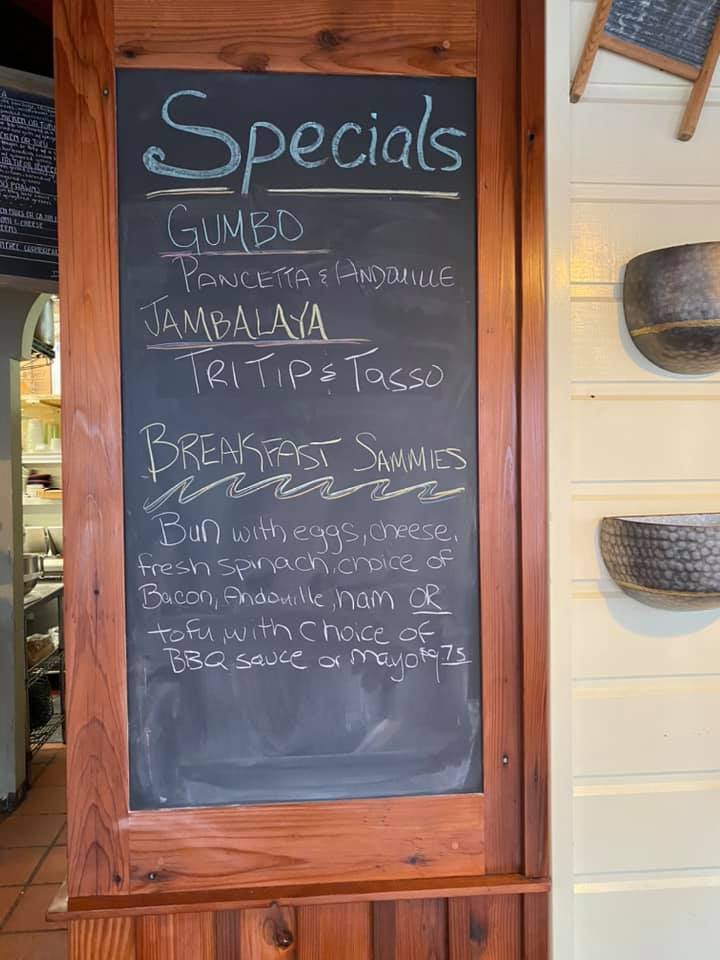 Specials
GUMBO
PANCETTA & ANDOUILLE
JAMBALAYA
TRI TIP & TASSO
BREAKFAST SAMMIES
Bun with eggs, cheese,
fresh spinach, choice of
Bacon, Andouille, ham OR
tofu, with choice of
BBQ sauce or mayo $9.75